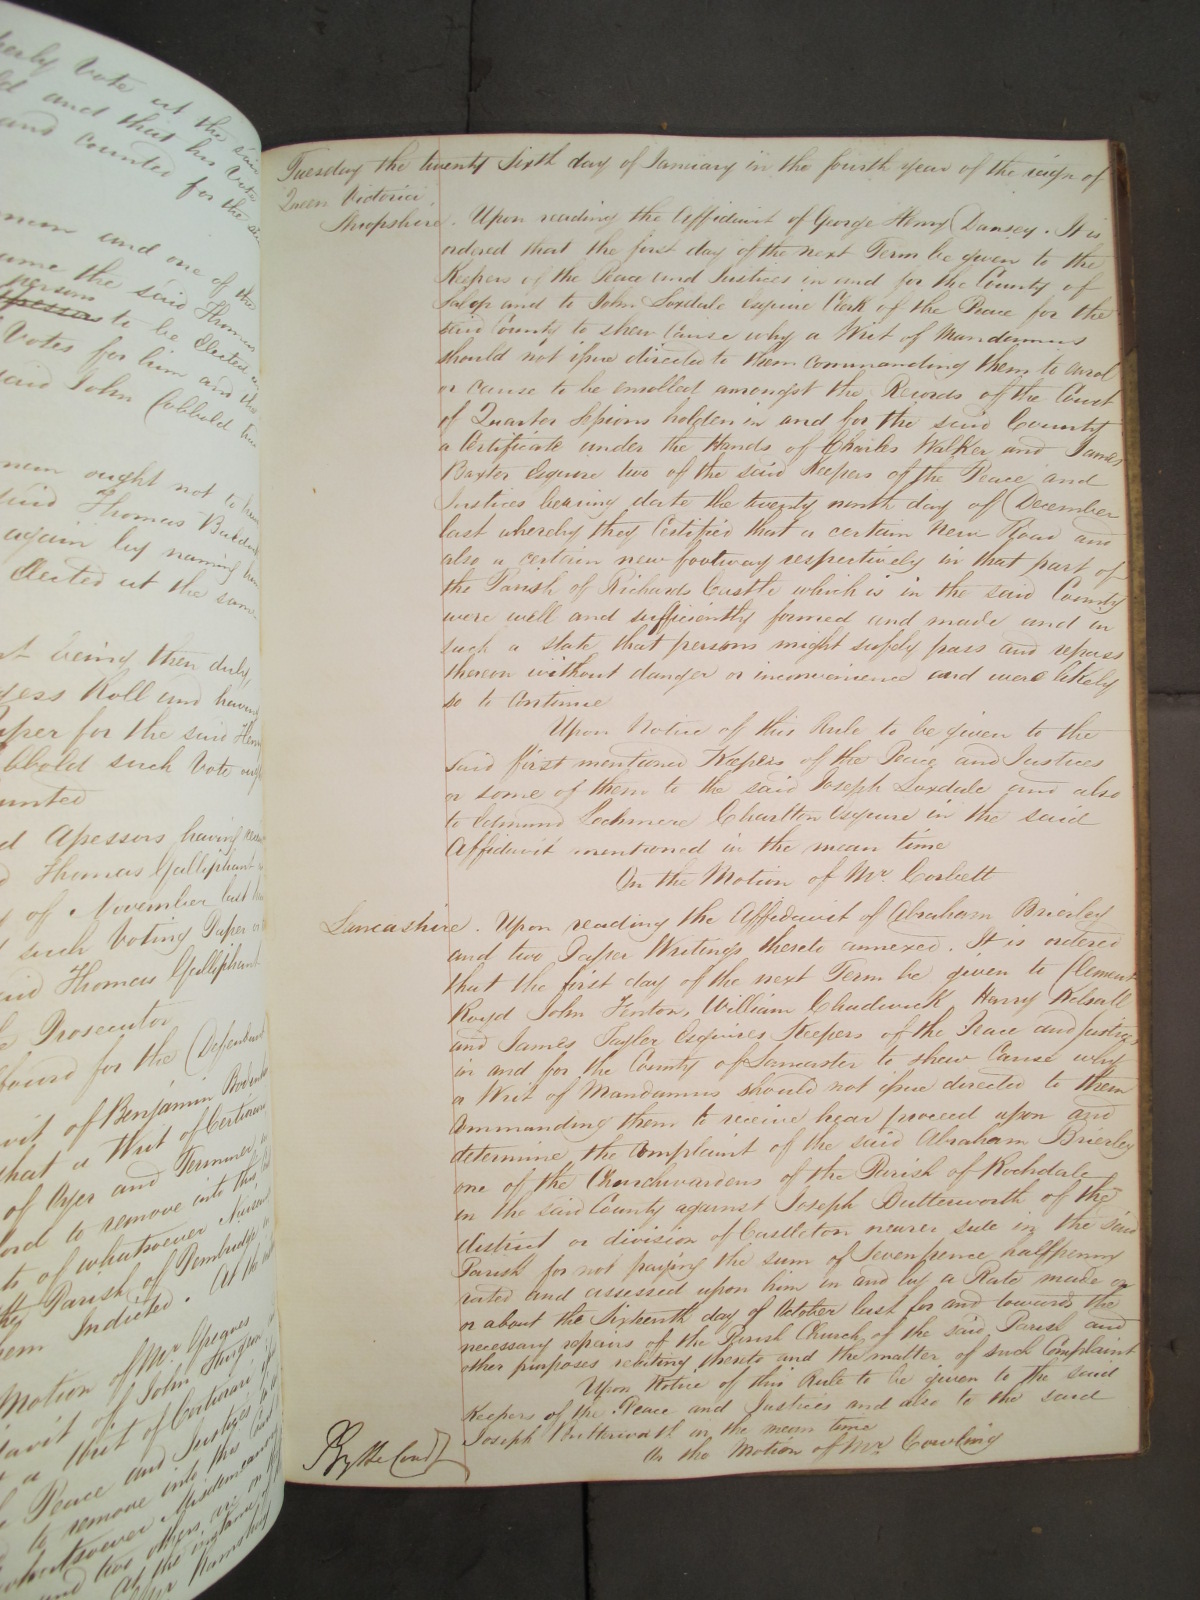 perly Vote at the
and that his Vote
and counted for the
man and one of the
same the said Thomas
person
to be Elected
Votes for him and the
said John Cobbold
man ought not to
said Thomas
again by naming
Elected at the
being then duly
Roll and having
Paper for the said
Cobbold such Vote
counted
Assessors having
Thomas Galliphant
of November last
such Voting Paper
said Thomas Galliphant
Prosecutor
found for the Defendant
of Benjamin
that a Writ of Certiorari
of Oyer and Terminer
to remove into this
of whatsoever
Parish of Pembridge
them Indicted. At the
Motion of Mr
of John
a Writ of Certiorari
Peace and Justices
to remove into this
whatsoever Misdemeanors
and two others
At the instance of
Tuesday the twenty Sixth day of January in the fourth year of the reign of
Queen Victoria.
Shropshire. Upon reading the Affidavit of George Henry Dansey. It is
ordered that the first day of the next Term be given to the
Keepers of the Peace and Justices in and for the County of
Salop and to John Loxdale esquire Clerk of the Peace for the
said County to shew Cause why a Writ of Mandamus
should not issue directed to them commanding them to enrol
or cause to be enrolled amongst the Records of the Court
of Quarter Sessions holden in and for the said County
a Certificate under the Hands of Charles Walker and James
Baxter Esquire two of the said Keepers of the Peace and
Justices bearing date the twenty ninth day of December
last whereby they Certified that a certain New Road and
also a certain new footway respectively in that part of
the Parish of Richards Castle which is in the said County
were well and sufficiently formed and made and in
such a state that persons might safely pass and repass
thereon without danger or inconvenience and were likely
so to Continue
Upon Notice of this Rule to be given to the
said first mentioned Keepers of the Peace and Justices
or some of them to the said Joseph Loxdale and also
to Edmund Lechmere Charlton esquire in the said
Affidavit mentioned in the mean time
On the Motion of Mr. Corbett
Lancashire. Upon reading the Affidavit of Abraham Brierley
and two Paper Writings thereto annexed. It is ordered
that the first day of the next Term be given to Clement
Royd John Fenton, William Chadwick, Henry Kelsall
and James Taylor Esquires Keepers of the Peace and Justices
in and for the County of Lancaster to shew Cause why
a Writ of Mandamus should not issue directed to them
commanding them to receive hear proceed upon and
determine the Complaint of the said Abraham Brierley
one of the Churchwardens of the Parish of Rochdale
in the said County against Joseph Butterworth of the
district or division of Castleton nearer side in the said
Parish for not paying the sum of Sevenpence halfpenny
rated and assessed upon him in and by a Rate made on
or about the Sixteenth day of October last for and towards the
necessary repairs of the Parish Church of the said Parish and
other purposes relating thereto and the matter of such Complaint
Upon Notice of this Rule to be given to the said
Keepers of the Peace and Justices and also to the said
Joseph Butterworth in the mean time
On the Motion of Mr. Cowling
By the Court